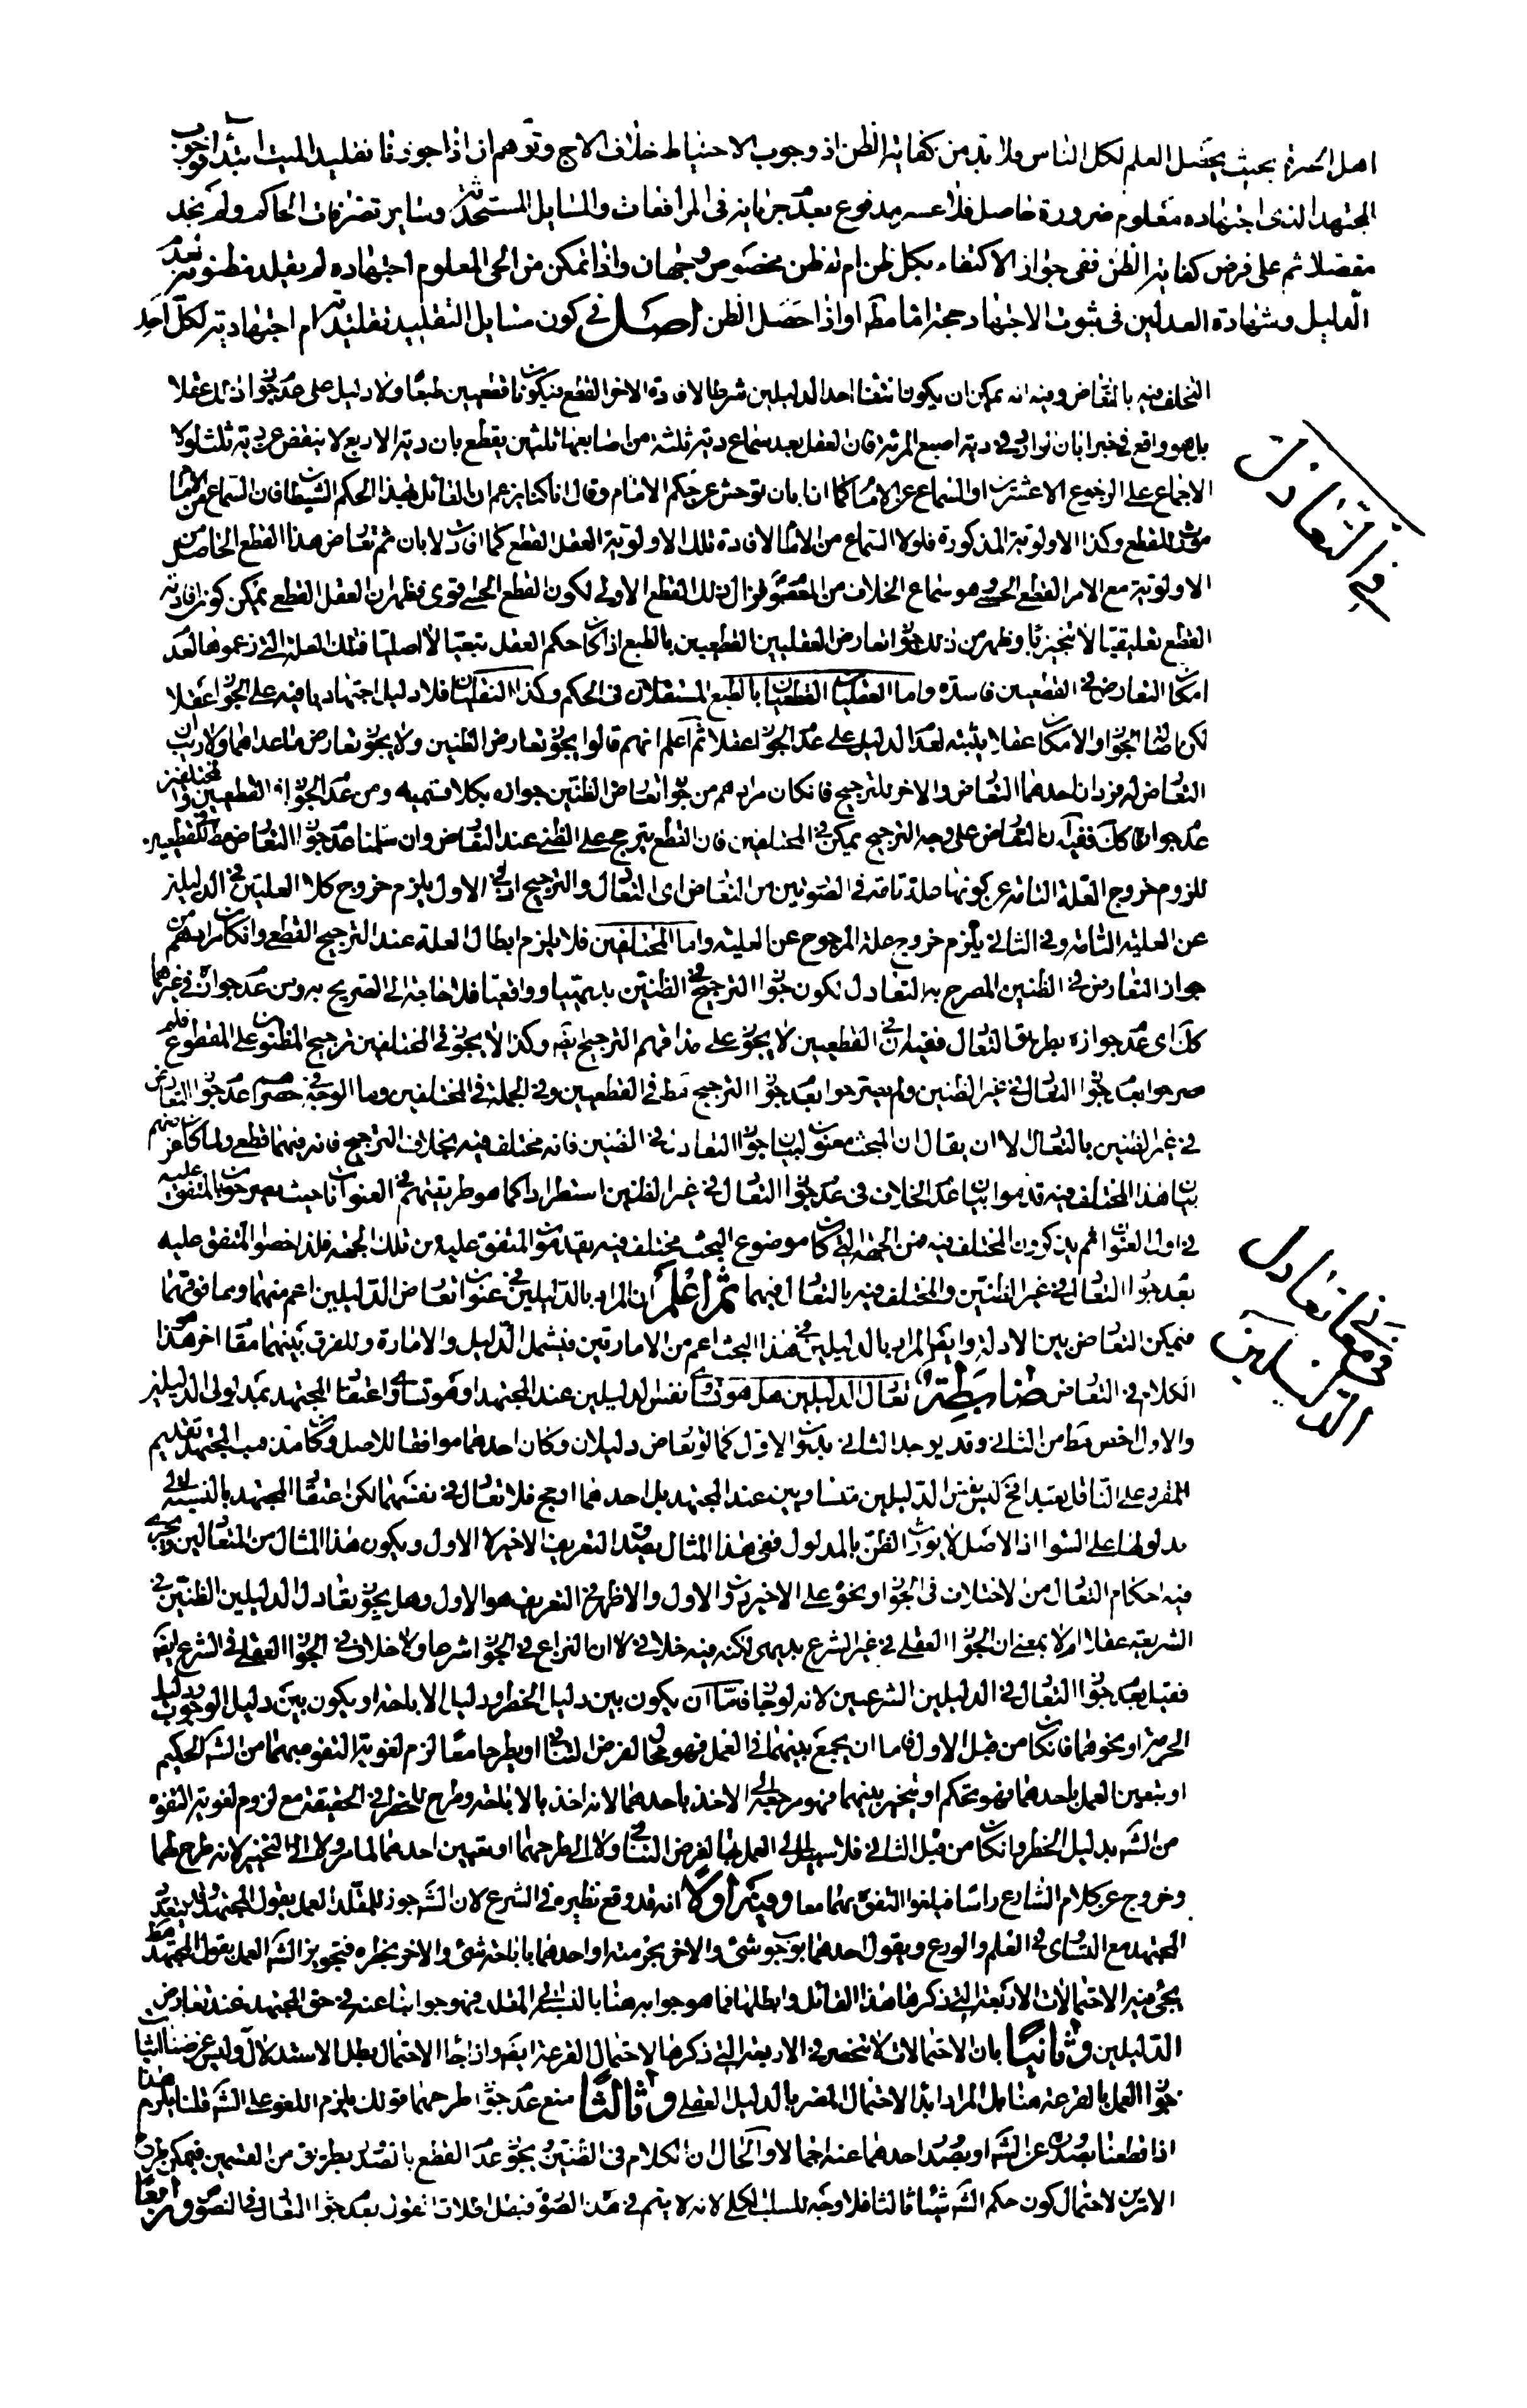 اهل الخبرة بحيث يحصل العلم لكل الناس ولا بد من كفاية الظن اذ وجوب الاحتياط خلاف الاج وتوهم ان اذا جوزنا تقليد الميت ابتداء فوجوب
المجتهد الذى اجتهاده معلوم ضرورة حاصل فلا عسر مدفوع بعدم جريانه فى المرافعات والمسايل المستحدثة وساير تصرفات الحاكم ولم نجد
مفصلا ثم على فرض كفاية الظن ففى جواز الاكتفاء بكل ظن ام لا ظن مخصوص وجهان واذا تمكن من الحى المعلوم اجتهاده لم يقلد مظنونه لعدم
الدليل وشهادة العدلين فى ثبوت الاجتهاد حجة اما مطم او اذا حصل الظن اصل فى كون مسايل التقليد تقليدية ام اجتهادية لكل احد
التخلف فيه بالتعارض وفيه انه يمكن ان يكون انتفاء احد الدليلين شرطا لافادة الاخر القطع فيكونان قطعيين طبعا ولا دليل على عدم جواز ذلك عقلا
بل هو واقع فى خبر ابان الوارد فى دية اصبع المرئة فان العقل بعد سماع دية ثلثة من اصابعها ثلثين يقطع بان دية الاربع لا ينقص عن دية ثلث لولا
الاجماع على الرجوع الى عشرين او السماع عن الامام كما ان ابان توحش عن حكم الامام وقال انا كنا نزعم ان القائل بهذا الحكم الشيطان فان السماع عن
مورث للقطع وكذا الاولوية المذكورة فلولا السماع من الامام لافادة تلك الاولوية العقل القطع كما افادت لابان ثم تعارض هذا القطع الحاصل من
الاولوية مع الامر القطع الحسى هو سماع الخلاف من المعصوم فزال ذلك القطع الاولى لكون القطع الحسى قوى فظهر ان العقل القطعى يمكن كون افادته
القطع تعليقيا لا تنجيزيا وظهر من ذلك جواز تعارض العقليين القطعيين بالطبع اذا كان حكم العقل تبعيا لا اصليا فتلك العلة التى زعموها لعدم
امكان التعارض فى القطعيين فاسدة واما العقليان القطعيان بالطبع المستقلان فى الحكم وكذا النقليان فلا دليل اجتهاديا فيه على الجواز عقلا
لكن اصالة الجواز والامكان عقلا يثبته لعدم الدليل على عدم الجواز عقلا ثم اعلم انهم قالوا يجوز تعارض الظنيين ولا يجوز تعارض ما عداهما ولا ريب ان
التعارض له فردان احدهما التعارض والاخر للترجيح فان كان مرادهم من جواز تعارض الظنيين جوازه بكلا قسميه ومن عدم الجواز فى القطعيين والمختلفين
عدم جوازه كل ففيه ان التعارض على وجه الترجيح يمكن فى المختلفين فان القطع يترجح على الظنى عند التعارض وان سلمنا عدم جواز التعارض مط فى القطعيين
للزوم خروج العلة التامة عن كونها علة تامة فى الصورتين من التعارض اى التعادل والترجيح اذ فى الاول يلزم خروج كلا العلتين فى الدليلين
عن العلية التامة وفى الثانى يلزم خروج علة المرجوح عن العلية واما المختلفين فلا يلزم ابطال العلة عند الترجيح القطعى وان كان مرادهم من
جواز التعارض فى الظنيين المصرح به التعادل لكون جواز الترجيح فى الظنيين بديهيا وواقعيا فلا حاجة الى التصريح به ومن عدم جوازه فى غيرهما
كل اى عدم جوازه بطريق التعادل ففيه ان فى القطعيين لا يجوز على مذاقهم الترجيح ايضه وكذا لا يجوز فى المختلفين ترجيح المظنون على المقطوع فلم
صرحوا بعدم جواز التعادل فى غير الظنيين ولم يصرحوا بعدم جواز الترجيح مط فى القطعيين وفى الجملة فى المختلفين وما الوجه فى حصر عدم جواز التعارض
فى غير الظنيين بالتعادل الا ان يقال ان المبحث معنون لبيان جواز التعادل فى الظنيين فانه مختلف فيه بخلاف الترجيح فانه فيهما قطعى ولما كان غرضهم
بيان هذا المختلف فيه قدموا بيان عدم الخلاف فى عدم جواز التعادل فى غير الظنيين استطرادا كما هو طريقتهم فى العنوانات حيث يصرحون بالمتفق عليه
فى اول العنوان ثم يذكرون المختلف فيه فمن الجهة التى كان موضوع البحث مختلف فيه يقدمون المتفق عليه من تلك الجهة فلذا خصوا المتفق عليه
بعدم جواز التعادل فى غير الظنيين والمختلف فيه بالتعادل فيهما ثم اعلم ان المراد بالدليلين فى عنوان تعارض الدليلين اعم منهما وما فوقهما
فيمكن التعارض بين الادلة وايضه المراد بالدليلين فى هذا البحث اعم من الامارتين فيشمل الدليل والامارة وللفرق بينهما مقام اخر هذا هو
الكلام فى التعارض ضابطة تعادل الدليلين هل هو تساوى نفس الدليلين عند المجتهد او هو تساوى اعتقاد المجتهد بمدلولى الدليلين
والاول اخص مط من الثانى وقد يوجد الثانى بدون الاول كما لو تعارض دليلان وكان احدهما موافقا للاصل وكان مذهب المجتهد تقديم
المقرر على الناقل تعبدا فح ليس نفس الدليلين متساويين عند المجتهد بل احدهما ارجح فلا تعادل فى نفسهما لكن اعتقاد المجتهد بالنسبة الى
مدلولهما على السواء اذ الاصل لا يورث الظن بالمدلول ففى هذا المثال يصدق التعريف الاخير لا الاول ويكون هذا المثال من المتعادلين ويجرى
فيه احكام التعادل من الاختلاف فى الجواز ونحوه على الاخير دون الاول والاظهر فى التعريف هو الاول وهل يجوز تعادل الدليلين الظنيين فى
الشريعة عقلا ام لا بمعنى ان الجواز العقلى فى غير الشرع بديهى لكنه فيه خلافى لا ان النزاع فى الجواز شرعا ولا خلاف فى الجواز العقلى فى الشرع ايضه
فقيل بعدم جواز التعادل فى الدليلين الشرعيين لانه لو جاز فاما ان يكون بين دليل الحظر ودليل الاباحة او يكون بين دليل الوجوب ودليل
الحرمة او نحوهما فان كان من قبيل الاول فاما ان يجمع بينهما فى العمل فهو محال لفرض التنافى او يطرحا معا لزم لغوية التفوه بهما من الشه الحكيم
او تعيين العمل باحدهما فهو تحكم او يتخير بينهما فهو مرجعه الى الاخذ باحدهما لانه اخذ بالاباحة وطرح للحظر فى الحقيقة مع لزوم لغوية التفوه
من الشه بدليل الحظر وان كان من قبيل الثانى فلا سبيل الى العمل بهما لفرض التنافى ولا الى طرحهما او تعيين احدهما لما مر ولا الى التخيير لانه طرح لهما
وخروج عن كلام الشارع راسا فيلغو التفوه بهما معا وفيه اولا انه قد وقع نظيره فى الشرع لان الشه جوز للمقلد العمل بقول المجتهدين بتعدد
المجتهد مع التساوى فى العلم والورع ويقول احدهما بوجوب شئ والاخر بحرمته او احدهما باباحة شئ والاخر بحظره فتجويز الشه العمل بقول المجتهد مط
يجئ فيه الاحتمالات الاربعة التى ذكرها هذا القائل وابطلها فما هو جوابه هنا بالنسبة الى المقلد فهو جوابنا عنه فى حق المجتهد عند تعارض
الدليلين وثانيا بان الاحتمالات لا تنحصر فى الاربعة التى ذكرها لاحتمال القرعة ايضه واذا جاء الاحتمال بطل الاستدلال وليس غرضنا اثبات
جواز العمل بالقرعة هنا بل المراد ابداء الاحتمال المضر بالدليل العقلى وثالثا منع عدم جواز طرحهما قولك يلزم اللغو على الشه قلنا يلزم هذا
اذا قطعنا بصدوره عن الشه او بصدور احدهما عنه اجمالا والحال ان الكلام فى الظنيين يجوز عدم القطع بالصدور بطريق من القسمين فيمكن طرح
الامرين لاحتمال كون حكم الشه شيئا ثالثا فلا وجه للسلب الكلى لانه لا يتم فى هذه الصورة فبطل قولك لا نقول بعدم جواز التعادل فى الصورة ورابعا
فى التعادل
فى معنى تعادل
الدليلين